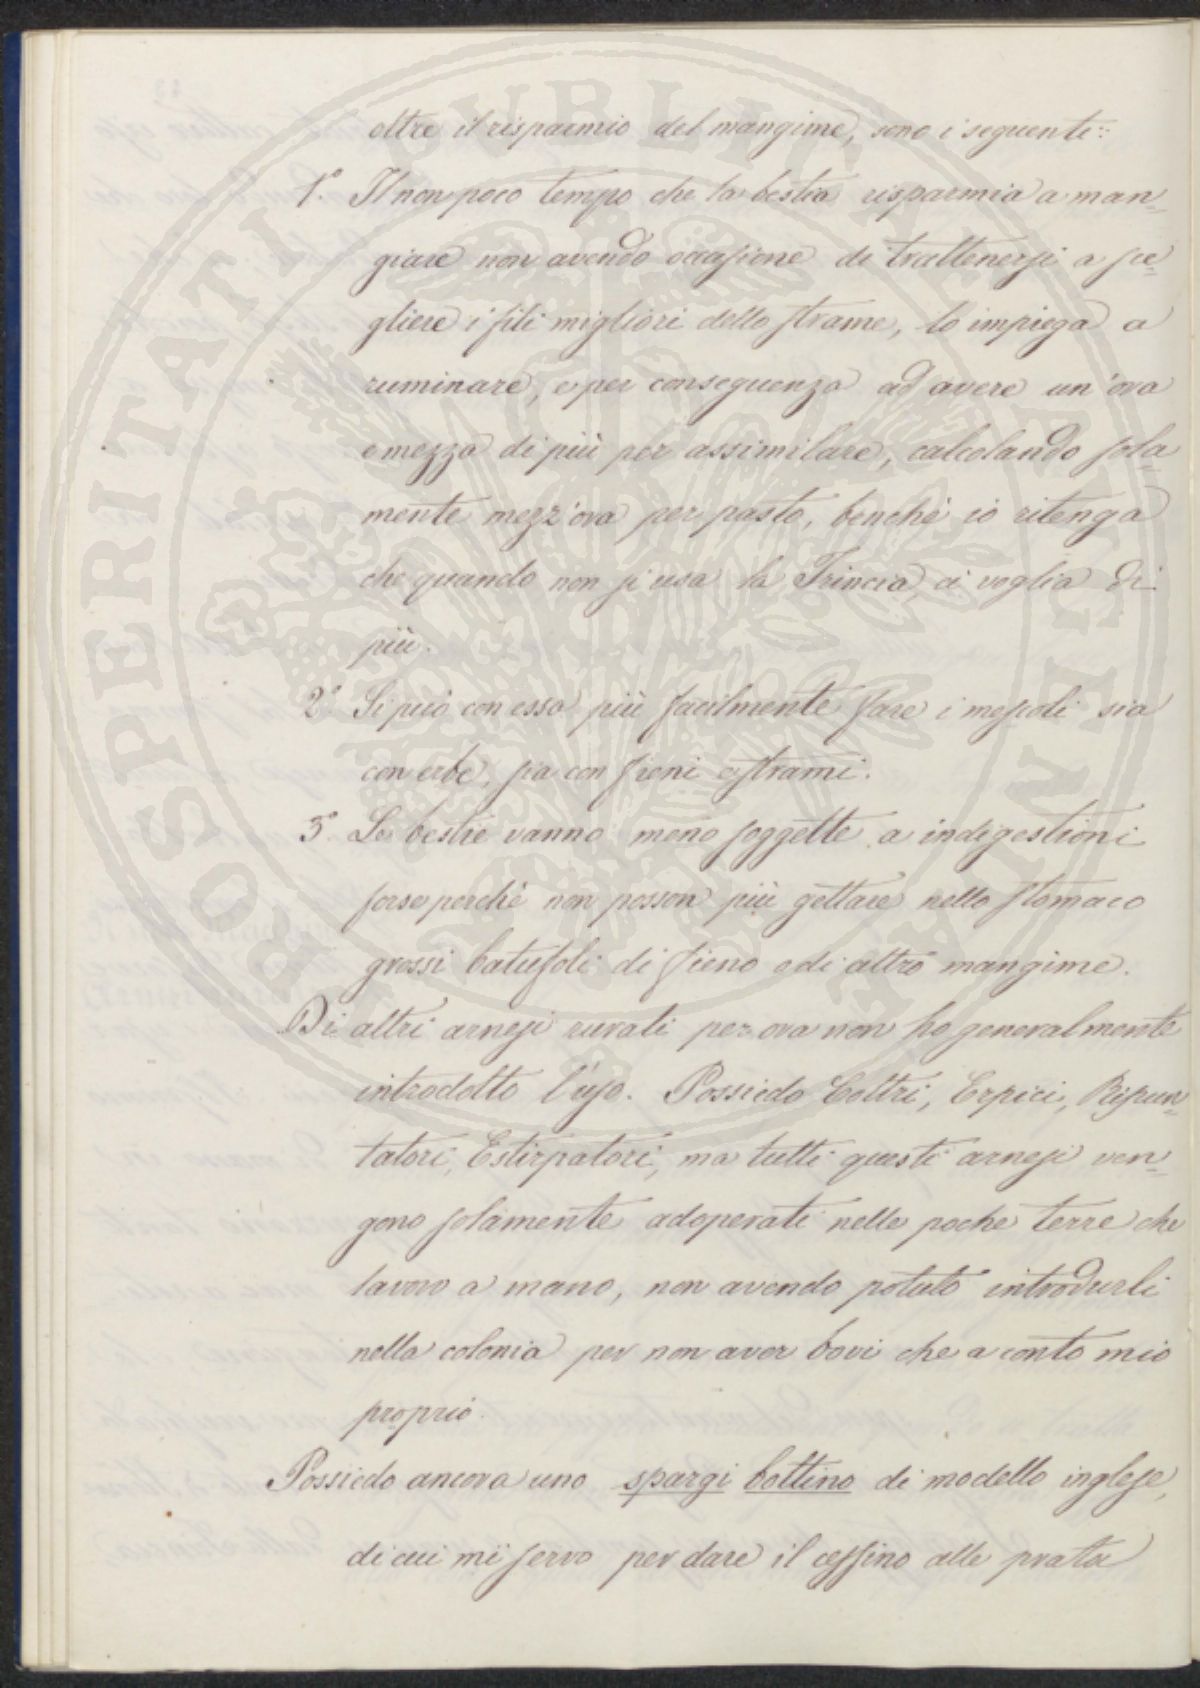 oltre il risparmio del mangime, sono i seguenti:
1.° Il non poco tempo che la bestia risparmia a man-
giare non avendo occasione di trattenersi a sce-
gliere i fili migliori dello strame, lo impiega a
ruminare, e per conseguenza ad avere un'ora
e mezzo di più per assimilare, calcolando sola
mente mezz'ora per pasto, benchè io ritenga
che quando non si usa la Trincia, ci voglia di
più.
2° Si può con essa più facilmente fare i mescoli sia
con erbe, sia con fieni e strami.
3° Le bestie vanno meno soggette a indigestioni
forse perchè non posson più gettare nello stomaco
grossi batufoli di fieno o di altro mangime.
Di altri arnesi rurali per ora non ho generalmente
introdotto l'uso. Possiedo Coltri, Erpici, Ripun-
tatori, Estirpatori, ma tutti questi arnesi ven-
gono solamente adoperati nelle poche terre che
lavoro a mano, non avendo potuto introdurli
nella colonia per non aver bovi che a conto mio
proprio.
Possiedo ancora uno spargi bottino di modello inglese,
di cui mi servo per dare il cessino alle prata
PROSPERITATI PUBLICAE AUGENDAE